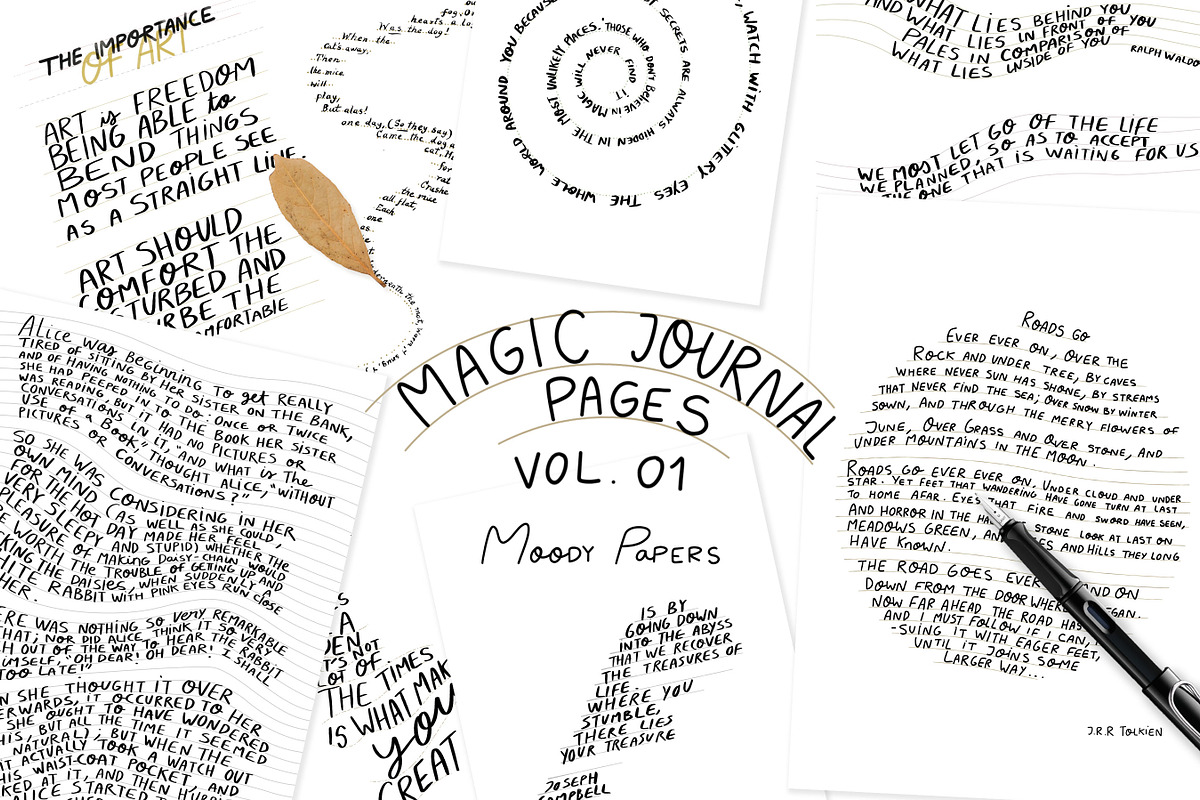 THE IMPORTANCE
OF ART
ART is FREEDOM
BEING ABLE to
BEND THINGS
MOST PEOPLE SEE
AS A STRAIGHT LINE.
ART SHOULD
COMFORT THE
DISTURBED AND
DISTURBE THE
COMFORTABLE
fog.
hearts
Was the dog!
When the
cat's away,
Then
the mice
will
play,
But alas!
one day, (So they say)
Came the dog a
cat, H
for
rat
Crushe
the mice
all flat,
Each
one
as
AROUND YOU BECAUSE
SECRETS ARE ALWAYS HIDDEN IN THE MOST UNLIKELY PLACES. THOSE WHO DON'T BELIEVE IN MAGIC WILL NEVER FIND IT
WATCH WITH GLITTERY EYES THE WHOLE WORLD
WHAT LIES BEHIND YOU
AND WHAT LIES IN FRONT OF YOU
PALES IN COMPARISON OF
WHAT LIES INSIDE OF YOU
RALPH WALDO
WE MOST LET GO OF THE LIFE
WE PLANNED, SO AS TO ACCEPT
THE ONE THAT IS WAITING FOR US
MAGIC JOURNAL
PAGES
VOL. 01
Moody Papers
Alice was beginning to get REALLY
TIRED OF SITTING BY HER SISTER ON THE BANK,
AND OF HAVING NOTHING TO DO: ONCE OR TWICE
SHE HAD PEEPED INTO THE BOOK HER SISTER
WAS READING, BUT IT HAD NO PICTURES OR
CONVERSATIONS IN IT, "AND WHAT is the
USE OF a Book," THOUGHT ALICE, "WITHOUT
PICTURES OR CONVERSATIONS?"
SO SHE WAS CONSIDERING IN HER
OWN MIND (AS WELL AS SHE COULD,
FOR THE HOT DAY MADE HER FEEL
VERY SLEEPY AND STUPID) WHETHER THE
PLEASURE OF MAKING DAISY-CHAIN WOULD
BE WORTH THE TROUBLE OF GETTING UP AND
CKING THE DAISIES, WHEN SUDDENLY A
HITE RABBIT WITH PINK EYES RUN CLOSE
HER.
ERE WAS NOTHING SO VERY REMARKABLE
THAT; NOR DID ALICE THINK IT SO VERY
H OUT OF THE WAY TO HEAR THE RABBIT
UMSELF, "OH DEAR! OH DEAR! I SHALL
TOO LATE!"
N SHE THOUGHT IT OVER
ERWARDS, IT OCCURRED TO HER
SHE OUGHT TO HAVE WONDERED
HIS, BUT ALL THE TIME IT SEEMED
NATURAL), BUT WHEN THE
IT ACTUALLY TOOK A WATCH OUT
HIS WAIST-COAT POCKET, AND
KED AT IT, AND THEN
ALICE STARTED
A
IT'S NOT
LOT OF
THE TIMES
IS WHAT MAK
you
GREAT
IS BY
GOING DOWN
INTO THE ABYSS
THAT WE RECOVER
THE TREASURES OF
LIFE.
WHERE YOU
STUMBLE,
THERE LIES
YOUR TREASURE
JOSEPH
CAMPBELL
ROADS GO
EVER EVER ON, OVER THE
ROCK AND UNDER TREE, BY CAVES
WHERE NEVER SUN HAS SHONE, BY STREAMS
THAT NEVER FIND THE SEA; OVER SNOW BY WINTER
SOWN, AND THROUGH THE MERRY FLOWERS OF
JUNE, OVER GRASS AND OVER STONE, AND
UNDER MOUNTAINS IN THE MOON.
ROADS GO EVER EVER ON, UNDER CLOUD AND UNDER
STAR. YET FEET THAT WANDERING HAVE GONE TURN AT LAST
TO HOME AFAR. EYES THAT FIRE AND SWORD HAVE SEEN,
AND HORROR IN THE HA STONE LOOK AT LAST ON
MEADOWS GREEN, AN ES AND HILLS THEY LONG
HAVE KNOWN.
THE ROAD GOES EVER AND ON
DOWN FROM THE DOOR WHERE EGAN.
NOW FAR AHEAD THE ROAD HAS
AND I MUST FOLLOW IF I CAN,
-SUING IT WITH EAGER FEET,
UNTIL IT JOINS SOME
LARGER WAY...
J.R.R TOLKIEN